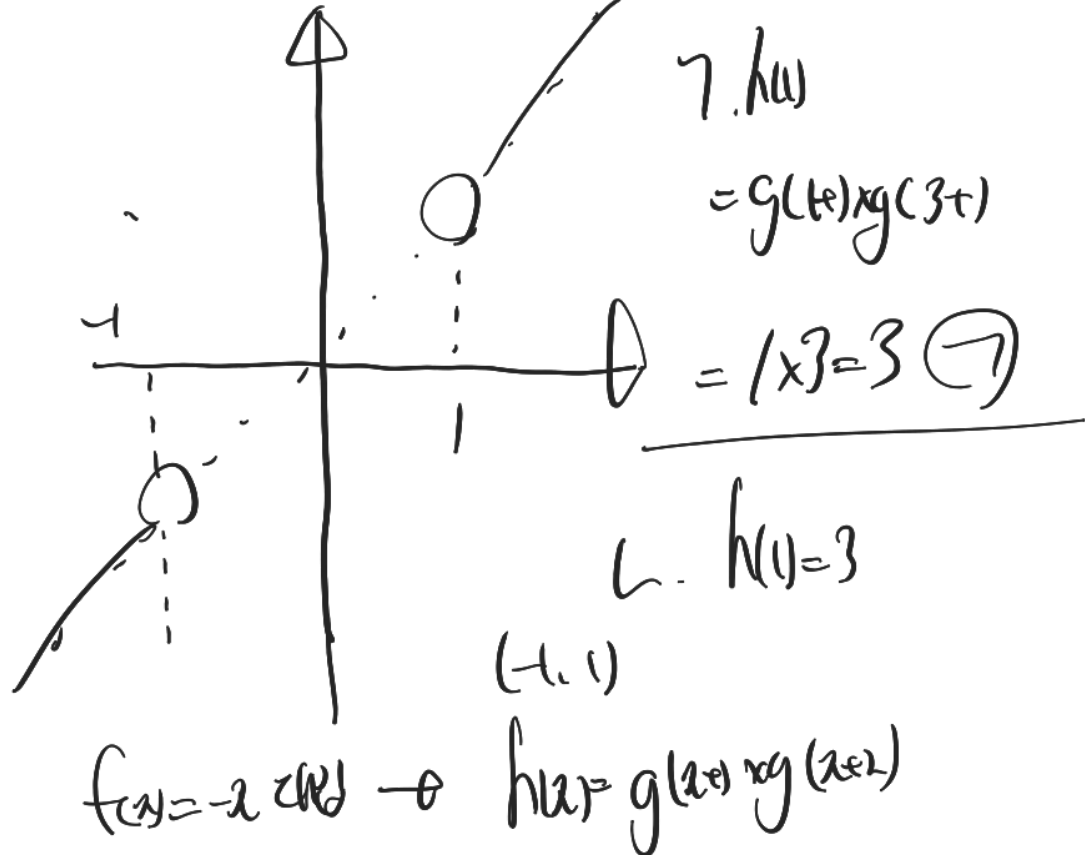 ㄱ. h(1)
= g(1+) × g(3+)
= 1×3 = 3 ㄱ
-1
1
ㄴ. h(1) = 3
(-1, 1)
f(x) = -x → h(x) = g(x+) × g(x+2)